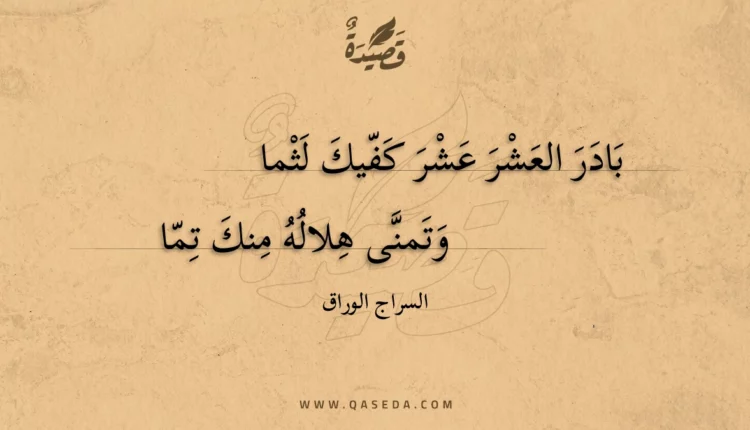 قَصِيْدَةٌ
بَادَرَ العَشْرَ عَشْرَ كَفّيكَ لَثْما
وَتَمنَّى هِلالُهُ مِنكَ تِمّا
السراج الوراق
WWW.QASEDA.COM